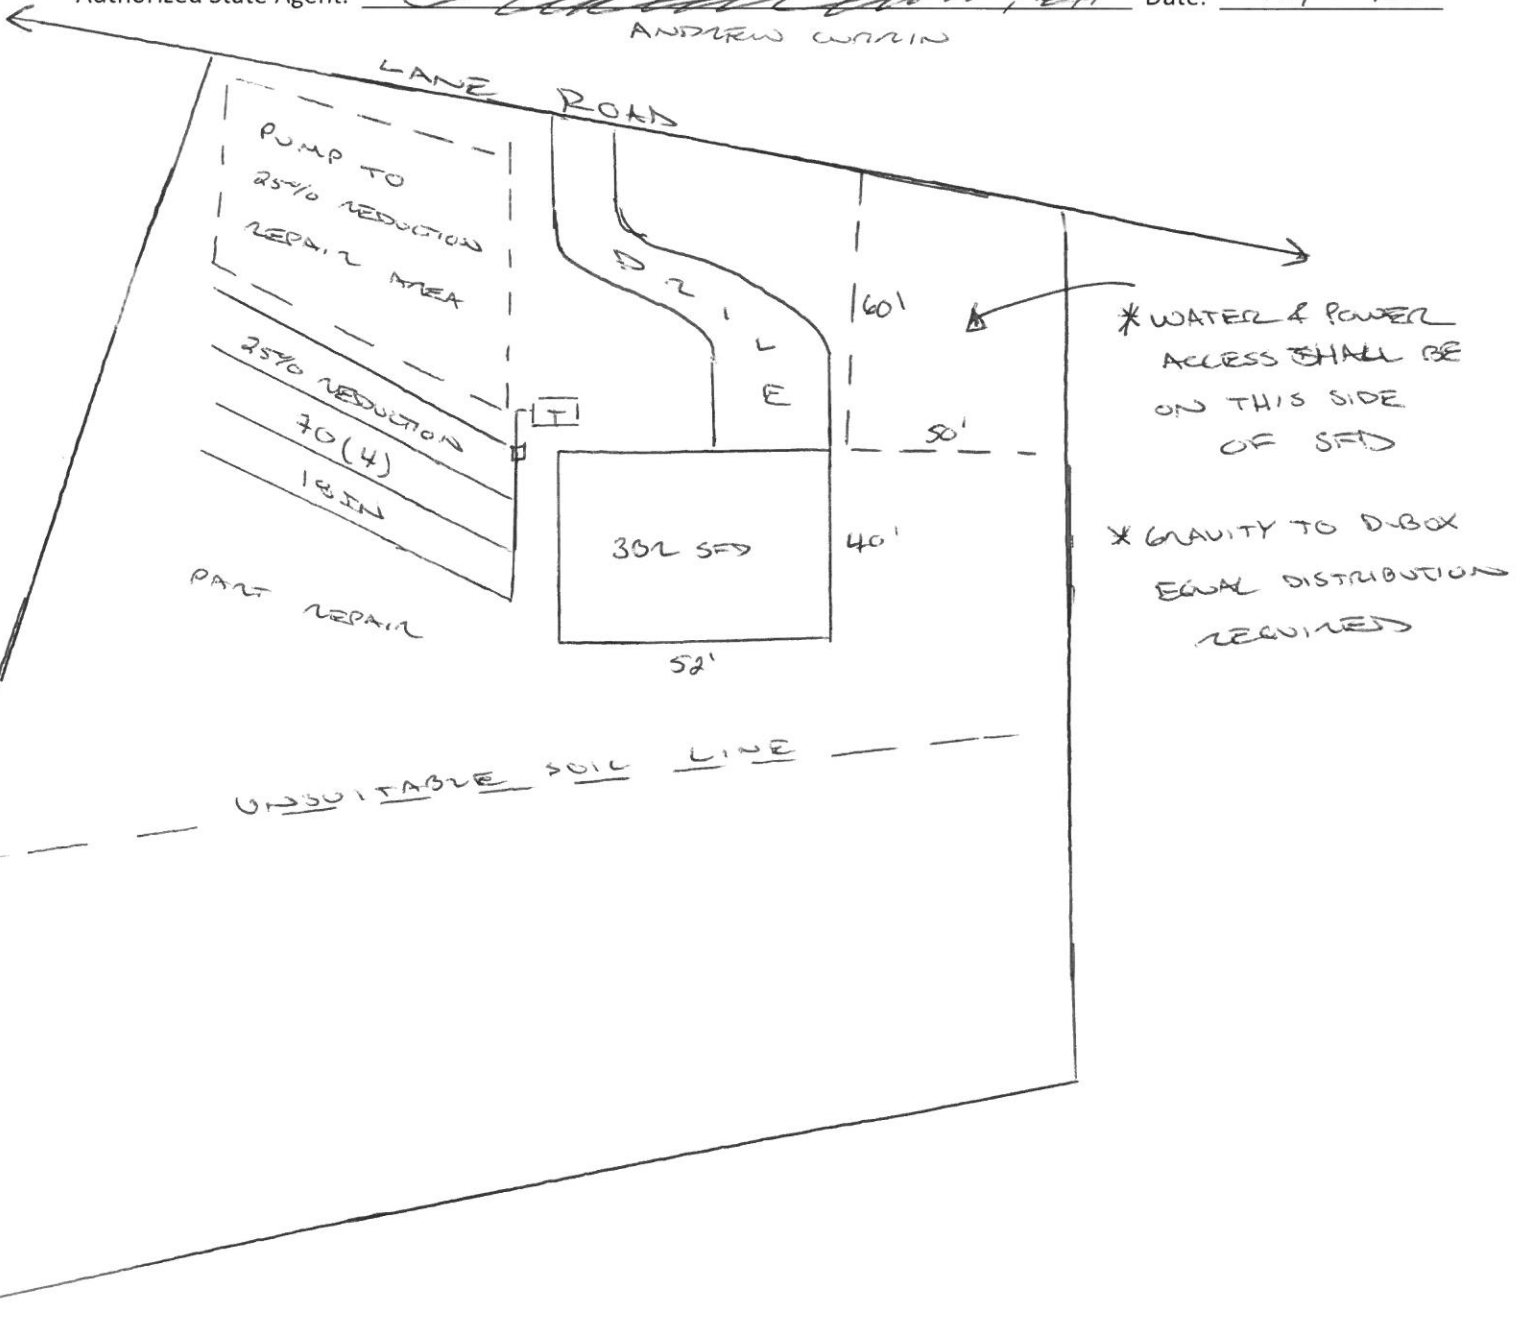 Authorized State Agent:
Date:
ANDREW CURRIN
LANE ROAD
PUMP TO
25% REDUCTION
REPAIR AREA
25% REDUCTION
70(4)
18IN
PART REPAIR
T
DRIVE
60'
50'
3BR SFD
40'
52'
* WATER & POWER
ACCESS SHALL BE
ON THIS SIDE
OF SFD
* GRAVITY TO D-BOX
EQUAL DISTRIBUTION
REQUIRED
UNSUITABLE SOIL LINE